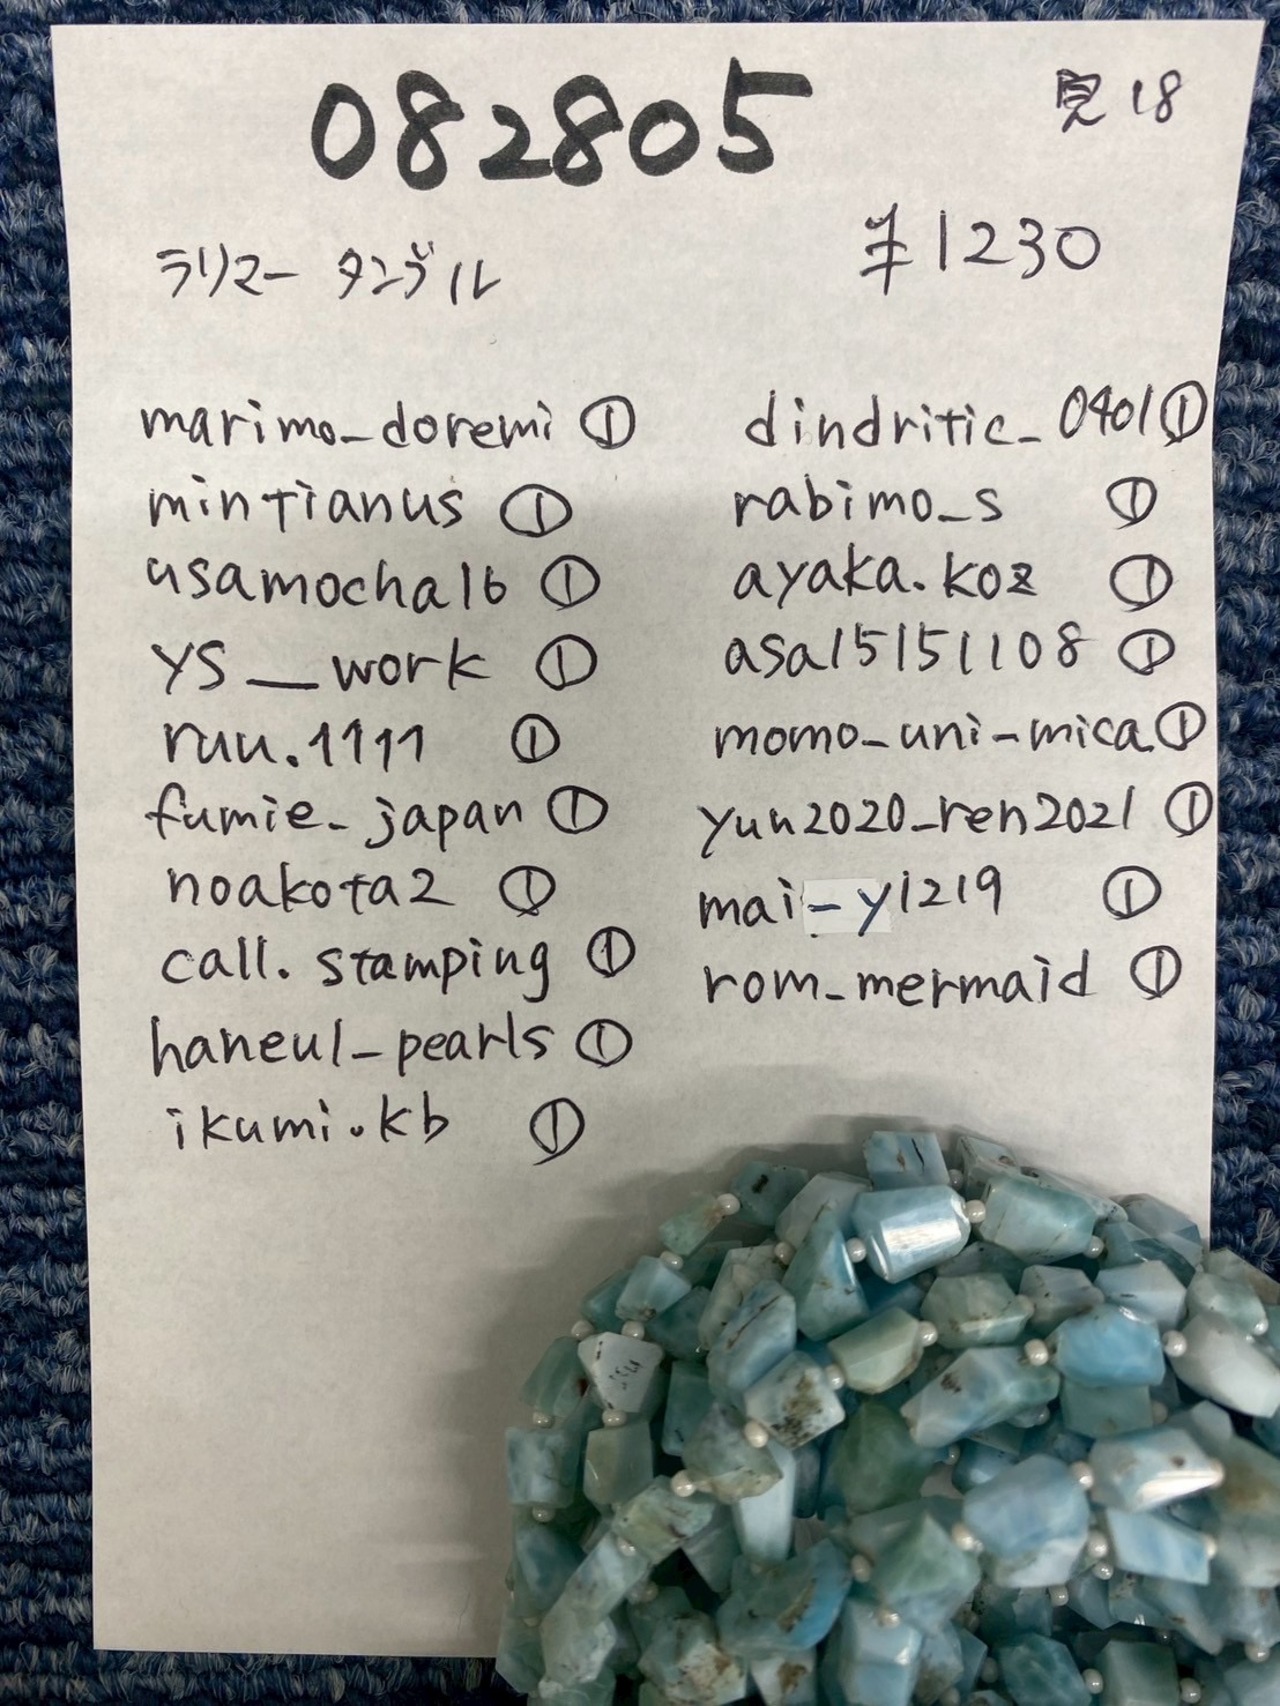 082805
見18
ラリマー タンブル
¥1230
marimo_doremi ①
mintianus ①
usamocha16 ①
ys__work ①
ruu.1111 ①
fumie_japan ①
noakota2 ①
call.stamping ①
haneul_pearls ①
ikumi.kb ①
dindritic_0401 ①
rabimo_s ①
ayaka.koz ①
asa15151108 ①
momo_uni_mica ①
yun2020_ren2021 ①
mai_y1219 ①
rom_mermaid ①